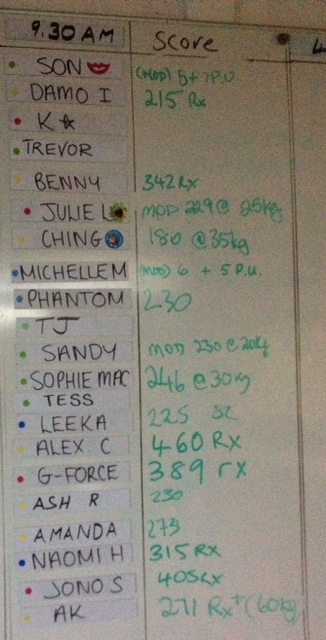 9.30 AM Score
SON (MOD) 5 + 7 P.U.
DAMO I 215 Rx
K
TREVOR
BENNY 342 Rx
JULIE L MOD 229 @ 25kg
CHING 180 @ 35kg
MICHELLE M (MOD) 6 + 5 P.U.
PHANTOM 230
TJ
SANDY MOD 230 @ 20kg
SOPHIE MAC 246 @ 30kg
TESS
LEEKA 225
ALEX C 460 Rx
G-FORCE 389 rx
ASH R 230
AMANDA 273
NAOMI H 315 RX
JONO S 405 RX
AK 271 Rx+ (60kg)